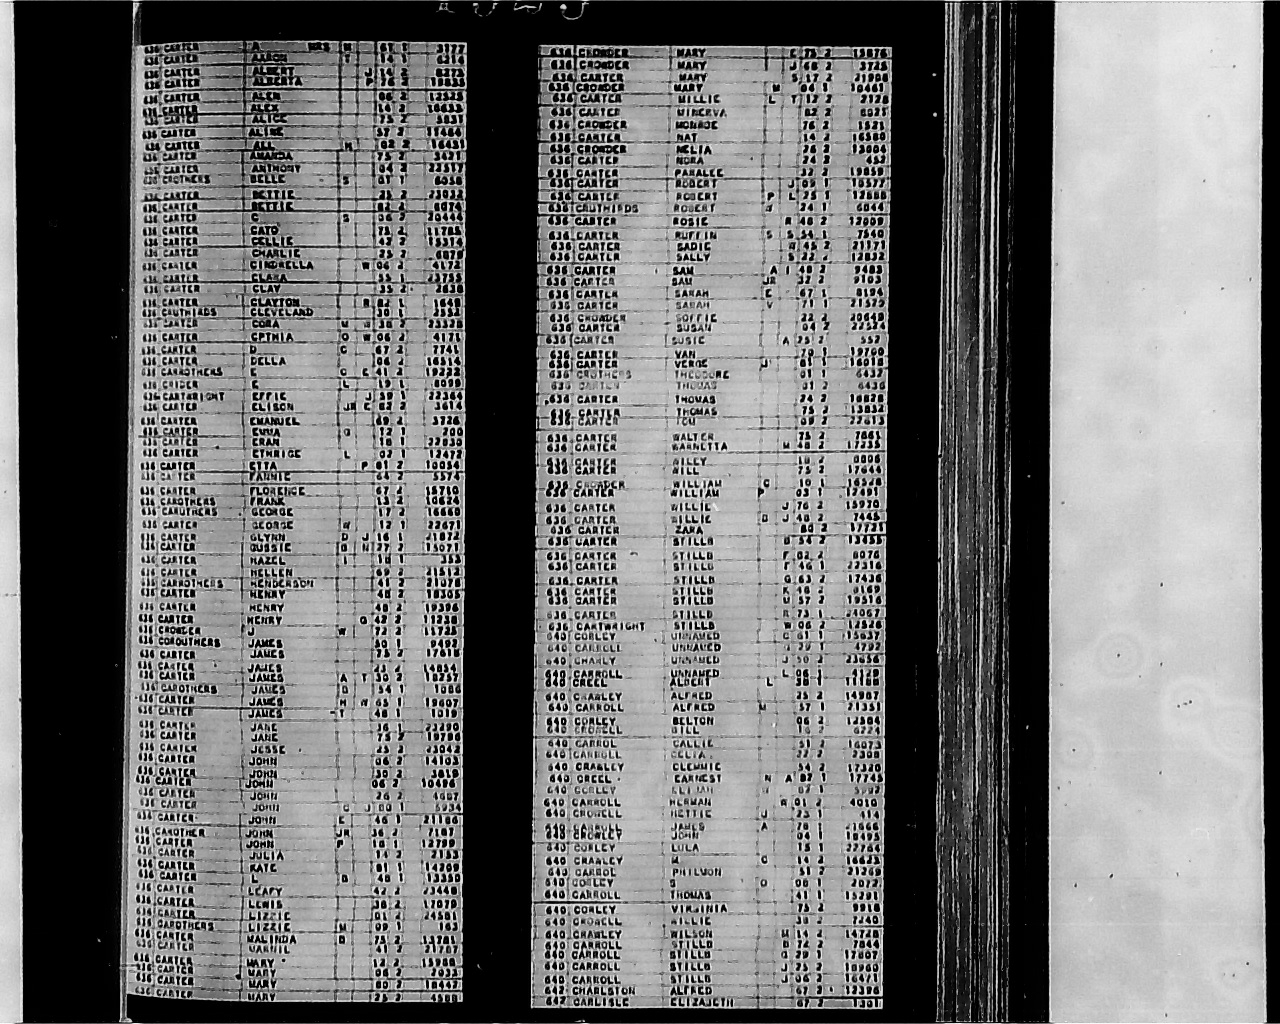 636 CARTER A MRS M 61 1 3177
636 CARTER AARON T 14 1 6214
636 CARTER ALBERT J 14 2 8273
636 CARTER ALBERTA P 78 2 19835
636 CARTER ALEN 06 2 12525
636 CARTER ALEX 14 2 16633
636 CARTER ALICE 75 2 5831
636 CARTER ALINE 57 2 11464
636 CARTER ALL M 02 2 16451
636 CARTER AMANDA 75 2 3421
636 CARTER ANTHONY 04 2 22517
636 CROTHERS BELLE S 01 1 8058
636 CARTER BETTIE 25 2 23032
636 CARTER BETTIE 82 2 8074
636 CARTER C S 06 2 20444
636 CARTER CATO 75 2 11785
636 CARTER CELLIE 42 2 15314
636 CARTER CHARLIE 25 2 6079
636 CARTER CINDRELLA W 06 2 4172
636 CARTER CLARA 55 1 23755
636 CARTER CLAY 35 2 2838
636 CARTER CLAYTON R 82 1 1648
636 CRUTHIRDS CLEVELAND 30 1 2552
636 CARTER CORA M W 38 2 23328
636 CARTER CPTHIA O W 06 2 4171
636 CARTER D C 67 2 7741
636 CARTER DELLA 06 2 16514
636 CARROTHERS E C E 41 2 19232
636 CRIDER E L 19 1 8099
636 CARTWRIGHT EFFIE J 59 1 22364
636 CARTER ELISON JR E 82 2 3614
636 CARTER EMANUEL 69 2 3726
636 CARTER EMMA G 12 1 200
636 CARTER ERAN 18 1 22830
636 CARTER ETHRIGE L 02 1 12472
636 CARTER ETTA P 81 2 10054
636 CARTER FANNIE 64 2 5574
636 CARTER FLORENCE 67 2 15710
636 CAROTHERS FRANK 13 2 10624
636 CARUTHERS GEORGE 17 2 16660
636 CARTER GEORGE W 12 1 22671
636 CARTER GLYNN D J 16 1 21872
636 CARTER GUSSIE B N 27 2 15071
636 CARTER HAZEL I 18 1 353
636 CARTER HELLEN 69 2 21512
636 CARROTHERS HENDERSON 41 2 21078
636 CARTER HENRY 48 2 18305
636 CARTER HENRY 48 2 19396
636 CARTER HENRY G 42 2 11238
636 CROWDER J W 72 2 15725
636 COROUTHERS JAMES 50 1 9492
636 CARTER JAMES 75 2 17618
636 CARTER JAMES 23 2 14854
636 CARTER JAMES A T 30 2 18257
636 CAROTHERS JAMES B 54 1 1086
636 CARTER JAMES H W 65 1 19607
636 CARTER JAMES T 48 1 1019
636 CARTER JANE 36 1 23290
636 CARTER JANE 75 2 13798
636 CARTER JESSE 25 2 23042
636 CARTER JOHN 06 2 14103
636 CARTER JOHN 30 2 3819
636 CARTER JOHN 06 2 10496
636 CARTER JOHN 26 2 4607
636 CARTER JOHN C J 80 1 5934
636 CARTER JOHN E 46 1 21186
636 CAROTHER JOHN JR 36 2 7187
636 CARTER JOHN P 18 1 12799
636 CARTER JULIA 14 2 2153
636 CARTER KATE 81 1 14209
636 CARTER L B 48 1 13350
636 CARTER LEAFY 42 2 23448
636 CARTER LEWIS 38 2 17079
636 CARTER LIZZIE 01 2 24581
636 CAROTHERS LIZZIE M 09 1 163
636 CARTER MALINDA B 75 2 13781
636 CARTER MARNIL 41 2 21787
636 CARTER MARY 12 2 15988
636 CARTER MARY 06 2 2033
636 CARTER MARY 80 2 18442
636 CARTER MARY 25 2 4588
636 CROWDER MARY E 75 2 15876
636 CROWDER MARY J 68 2 3725
636 CARTER MARY S 17 2 21908
636 CROWDER MARY M 04 1 10461
636 CARTER MILLIE L T 12 2 2128
636 CARTER MINERVA 82 2 8025
636 CROWDER MONROE 76 2 1521
636 CARTER NAT 14 2 16580
636 CROWDER NELIA 26 2 13004
636 CARTER NORA 24 2 452
636 CARTER PARALEE 32 2 19859
636 CARTER ROBERT J 09 1 10577
636 CARTER ROBERT P L 25 1 12868
636 CRUTHIRDS ROBERT W 24 1 6844
636 CARTER ROSIE R 48 2 12009
636 CARTER RUFFIN S S 54 1 7540
636 CARTER SADIE W 45 2 21171
636 CARTER SALLY S 22 2 12832
636 CARTER SAM A I 48 2 9483
636 CARTER SAM JR 32 2 9103
636 CARTER SARAH E 67 1 8194
636 CARTER SARAH V 71 1 21529
636 CROWDER SOFFIE 22 2 20649
636 CARTER SUSAN 04 2 22524
636 CARTER SUSIE A 25 2 552
636 CARTER VAN 70 1 19700
636 CARTER VERGE J 61 1 16018
636 CROTHERS THEODORE 01 1 6437
636 CARTER THOMAS 01 2 6436
636 CARTER THOMAS 24 2 18828
636 CARTER THOMAS 75 2 13832
636 CARTER TOM 09 2 22613
636 CARTER WALTER 75 2 7661
636 CARTER WARNETTA M 48 2 17235
636 CARTER WILEY 18 2 8006
636 CARTER WILL 75 2 17644
636 CROWDER WILLIAM C 10 1 16528
636 CARTER WILLIAM P 03 1 12491
636 CARTER WILLIE J 76 2 15970
636 CARTER WILLIE B J 48 2 7445
636 CARTER ZARA 80 2 17721
636 CARTER STILLB B 54 2 13455
636 CARTER STILLB F 02 2 8076
636 CARTER STILLB F 46 1 22316
636 CARTER STILLB G 63 2 17436
636 CARTER STILLB K 48 2 9169
636 CARTER STILLB M 57 2 19516
636 CARTER STILLB R 73 1 24067
636 CARTWRIGHT STILLB W 06 2 12528
640 CORLEY UNNAMED C 61 1 15637
640 CARROLL UNNAMED G 29 1 4792
640 CHARLY UNNAMED J 50 2 23656
640 CARROLL UNNAMED L 06 1 4129
640 CREEL ALBERT L 38 1 11188
640 CRAWLEY ALFRED 25 2 14987
640 CARROLL ALFRED M 57 1 21351
640 CORLEY BELTON 06 2 12584
640 CROWELL BILL 18 2 6224
640 CARROL CALLIE 51 2 16073
640 CARROLL CELIA 22 2 2308
640 CRAWLEY CLEMMIE 54 2 17320
640 CREEL EARNEST N A 82 1 17745
640 CORLEY 82 1 5992
640 CARROLL HERMAN W 01 2 4010
640 CROWELL HETTIE J 23 1 414
640 CARROLL JAMES A 78 1 21666
640 CRAWLEY JOHN 04 1 18495
640 CORLEY LULA 15 1 22764
640 CRAWLEY M C 14 2 16623
640 CARROL PHILMON 51 2 21269
640 CORLEY S O 08 1 2022
640 CARROLL THOMAS 41 1 15291
640 CORLEY VIRGINIA 75 2 9918
640 CROWELL WILLIE 38 2 7240
640 CRAWLEY WILSON M 14 2 14728
640 CARROLL STILLB B 72 2 7844
640 CARROLL STILLB G 29 1 17807
640 CARROLL STILLB J 25 2 18960
640 CARROLL STILLB J 06 2 16471
642 CHARLSTON ALFRED 67 2 12396
642 CARLISLE ELIZABETH 67 2 1301